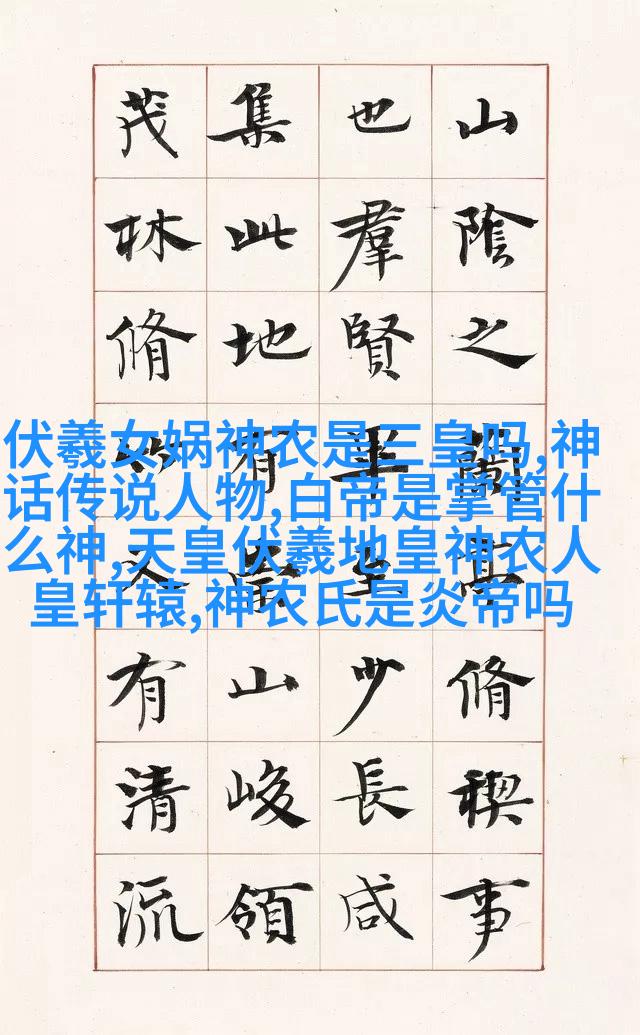 山陰之蘭亭脩禊事
也羣賢畢至少長咸
集此地有崇山峻領
茂林脩竹又有清流
伏羲女娲神农是三皇吗,神
话传说人物,白帝是掌管什
么神,天皇伏羲地皇神农人
皇轩辕,神农氏是炎帝吗